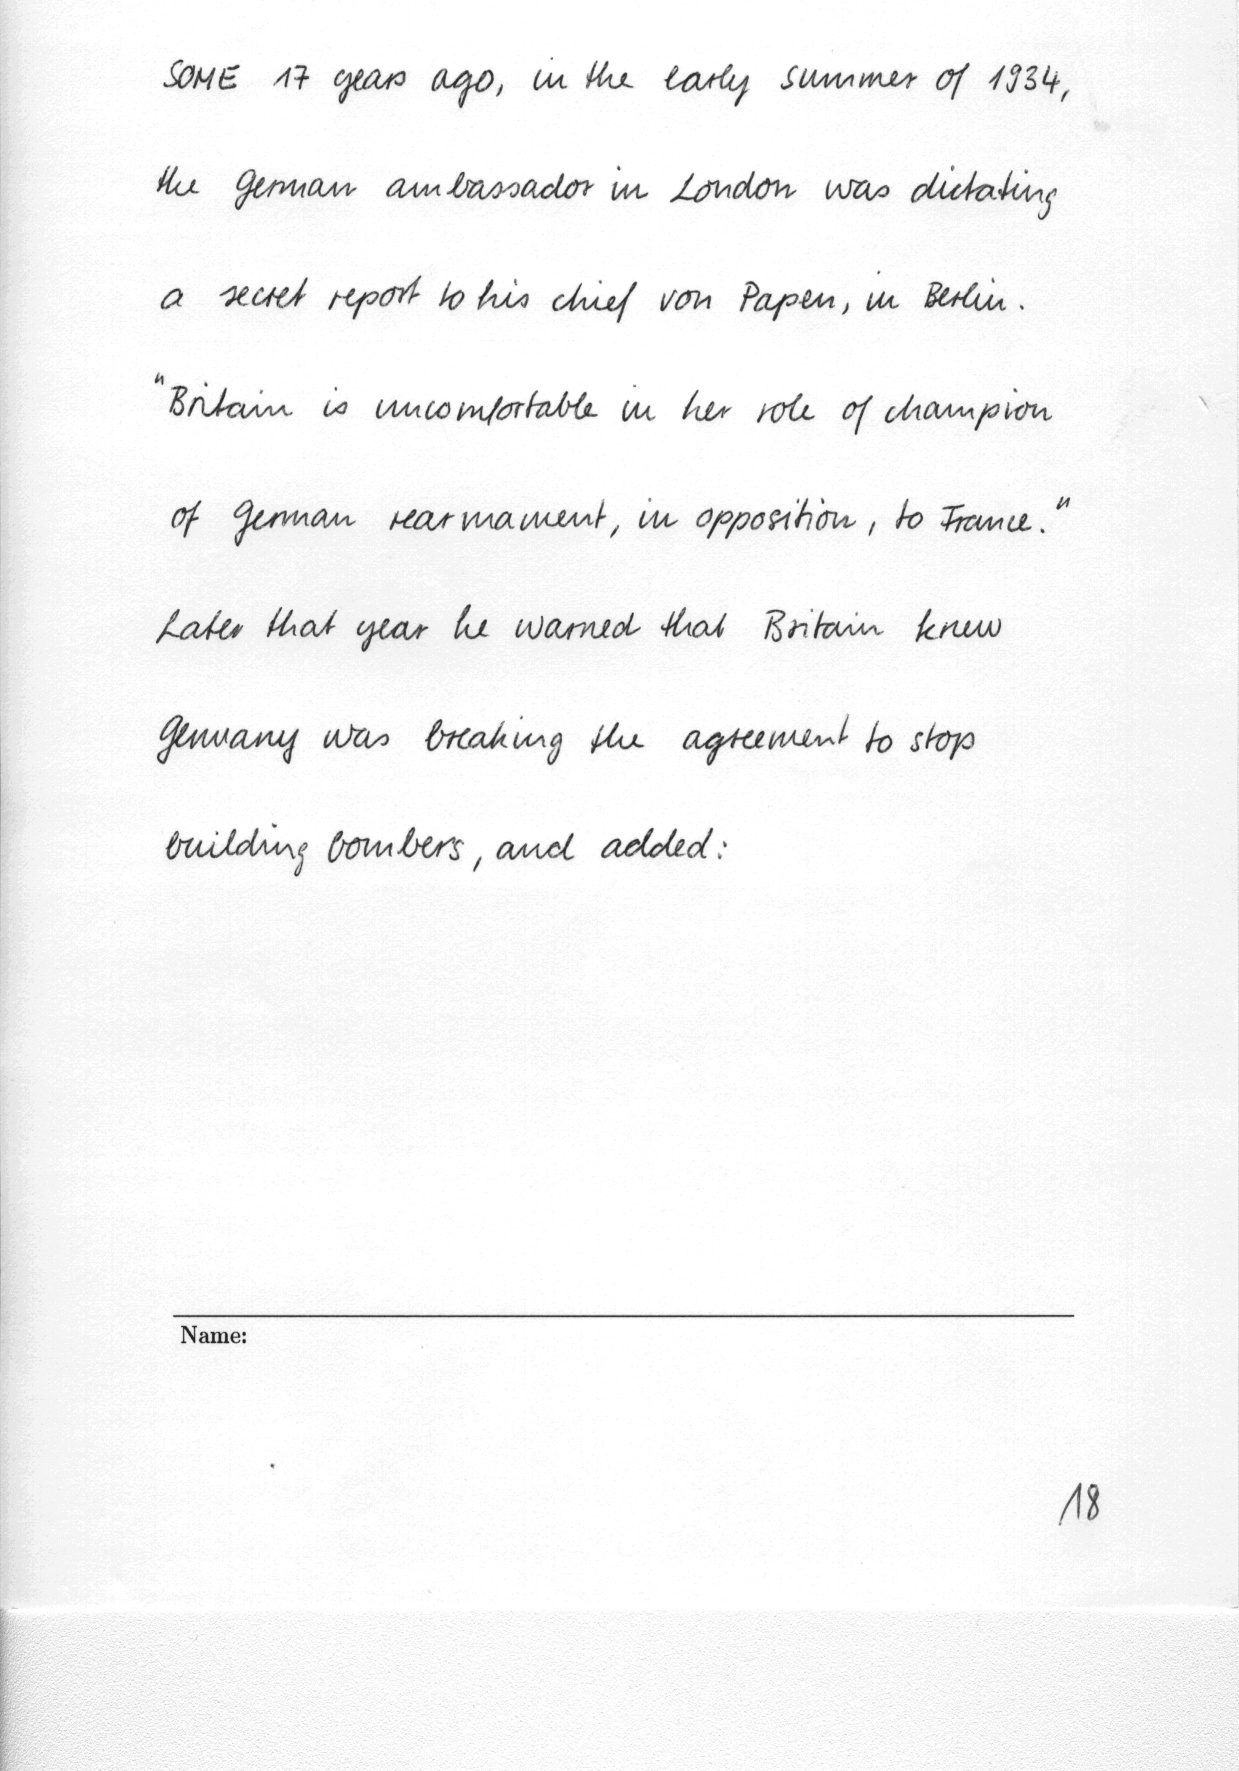 SOME 17 years ago, in the early summer of 1934,
the German ambassador in London was dictating
a secret report to his chief von Papen, in Berlin.
"Britain is uncomfortable in her role of champion
of German rearmament, in opposition, to France."
Later that year he warned that Britain knew
Germany was breaking the agreement to stop
building bombers, and added:
Name:
18